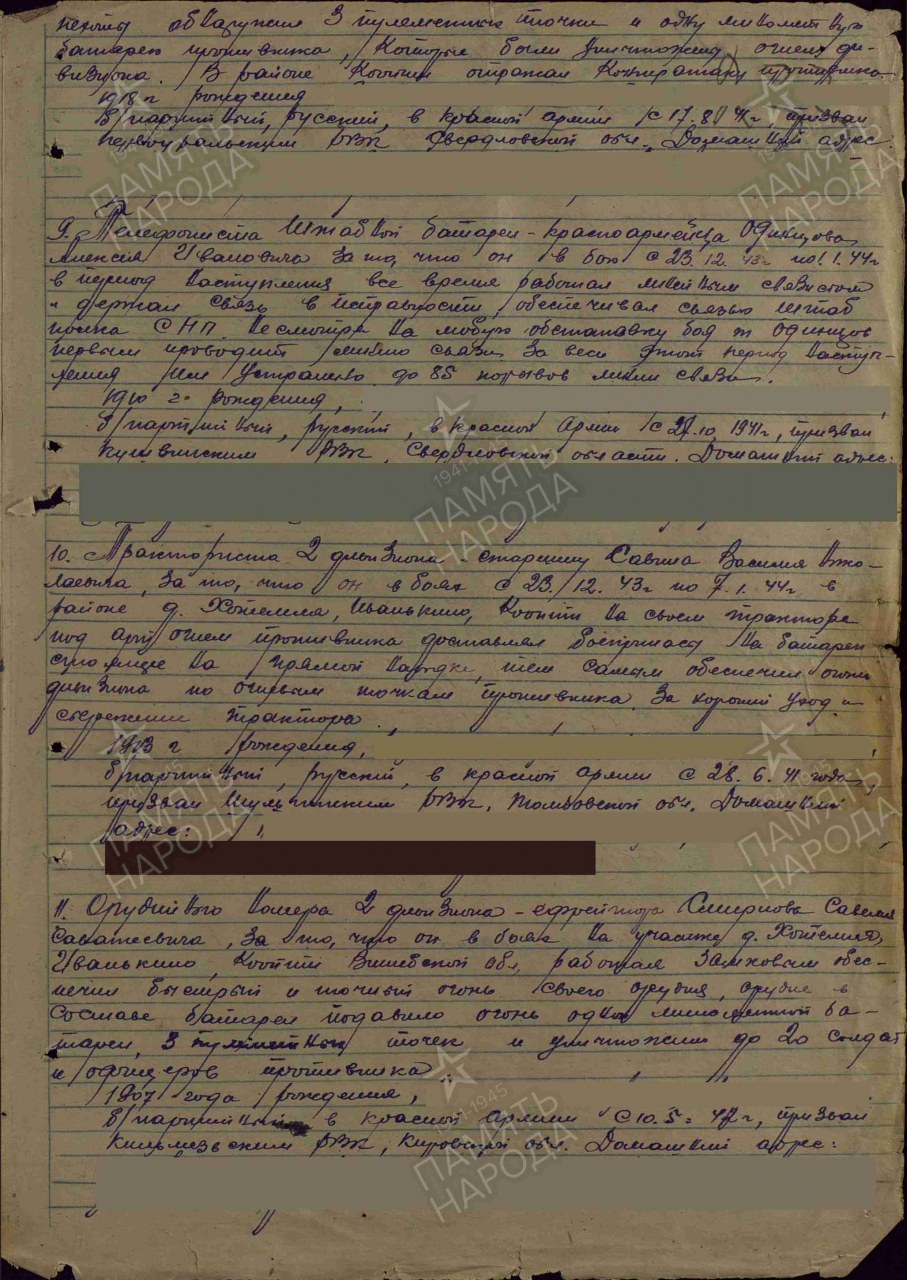 пехоты обнаружил 3 пулеметных точки и одну минометную
батарею противника, которые были уничтожены огнем ди-
визиона. В районе Коопти отражал контратаку противника.
1918 г рождения
б/партийный, русский, в красной армии с 17.8.41г, призван
Первоуральским РВК Свердловской обл. Домашний адрес:
9. Телефониста Штабной батареи - красноармейца Одинцова
Алексея Ивановича за то, что он в бою с 23.12.43г по 1.1.44г
в период наступления все время работал линейным связистом
и держал связь в исправности, обеспечивал связью штаб
полка с НП. Несмотря на любую обстановку боя т. Одинцов
первым проводил линию связи. За весь этот период наступ-
ления им устранено до 85 порывов линии связи.
1910 г. рождения,
б/партийный, русский, в красной армии с 21.10.1941г, призван
Кушвинским РВК, Свердловской области. Домашний адрес:
10. Тракториста 2 дивизиона - старшину Савина Василия Нико-
лаевича, за то, что он в боях с 23.12.43г по 7.1.44г в
районе д. Хотемля, Иванькино, Коопти на своем тракторе
под арт огнем противника доставлял боеприпасы на батареи
стоящие на прямой наводке, чем самым обеспечил огонь
дивизиона по огневым точкам противника. За хороший уход и
сбережение трактора.
1913 г рождения,
б/партийный, русский, в красной армии с 28.6.41 года,
призван РВК, Тамбовской обл. Домашний
адрес:
11. Орудийного номера 2 дивизиона - ефрейтора Смирнова Савелия
Саватеевича, за то, что он в боях на участке д. Хотемля,
Иванькино, Коопти Витебской обл. работая замковым обес-
печил быстрый и точный огонь своего орудия, орудие в
составе батареи подавило огонь одной минометной ба-
тареи, 3 пулеметных точек и уничтожили до 20 солдат
и офицеров противника
1907 года рождения,
б/партийный в красной армии с 10.5.42г, призван
Кильмезским РВК, Кировской обл. Домашний адрес:
ПАМЯТЬ
НАРОДА
1941-1945